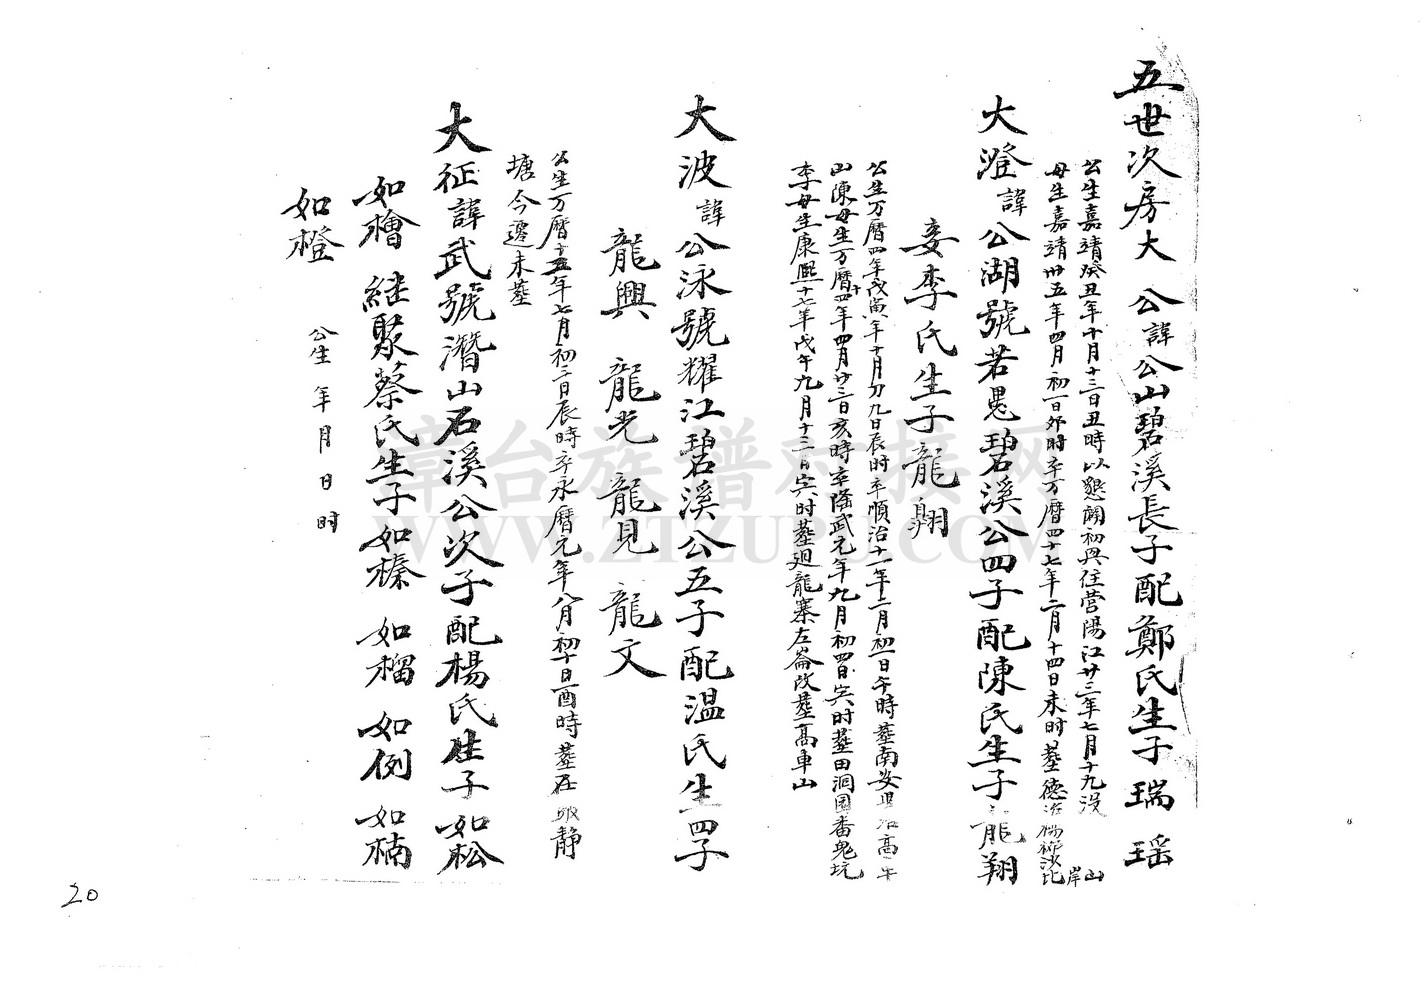 五世次房大 公諱公山碧溪長子配鄭氏生子瑞 瑶
公生嘉靖癸丑年十月十三日丑時以懇闢初與住营陽江廿三年七月十九没
母生嘉靖卅五年四月初一日夘時卒万暦四十七年二月十四日未时墓德
山岸
大澄諱公湖號若愚碧溪公四子配陳氏生子龍翔
妾李氏生子龍翺
公生万暦四年戊寅年十月初九日辰时卒順治十一年二月初一日午時墓南安
山陳母生万暦十四年四月廿三日亥時卒隆武元年九月初四日寅时墓田洞園番鬼坑
李母生康熙十七年戊午九月十三日寅时墓廻龍寨左崙改墓高車山
大波諱公泳號耀江碧溪公五子配温氏生四子
龍興 龍光 龍見 龍文
公生万暦十五年七月初二日辰時卒永暦元年八月初十日酉時墓在 静
塘今遷未墓
大征諱武號潛山石溪公次子配楊氏生子如松
如檜 継聚蔡氏生子如榛 如榴 如例 如楠
如橙 公生 年 月 日 时
章台族谱对接网
WWW.ZTZUPU.COM
20